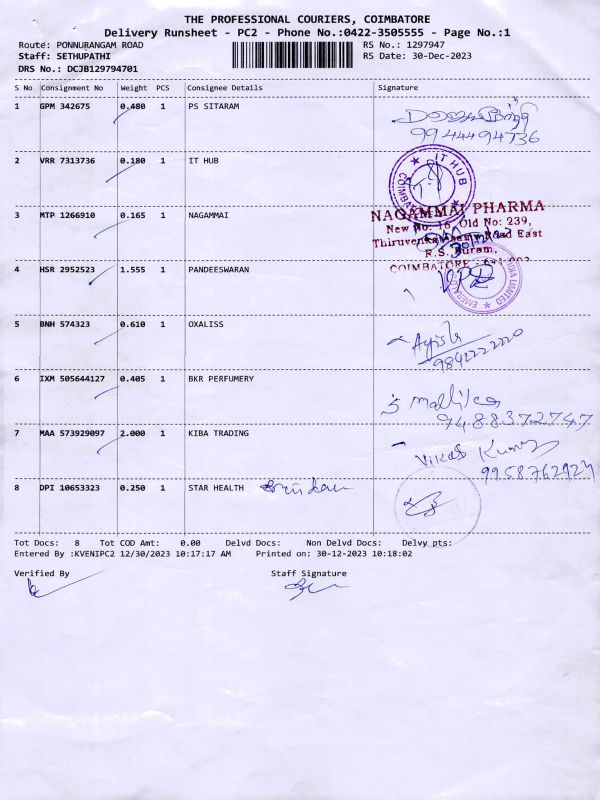 THE PROFESSIONAL COURIERS, COIMBATORE
Delivery Runsheet - PC2 - Phone No.:0422-3505555 - Page No.:1
Route: PONNURANGAM ROAD RS No.: 1297947
Staff: SETHUPATHI RS Date: 30-Dec-2023
DRS No.: DCJB129794701
S No Consignment No Weight PCS Consignee Details Signature
1 GPM 342675 0.480 1 PS SITARAM
9944494736
2 VRR 7313736 0.180 1 IT HUB
IT HUB
COIMBATORE
3 MTP 1266910 0.165 1 NAGAMMAI
NAGAMMAI PHARMA
New No: 16, Old No: 239,
Road East
R.S. Puram,
COIMBATORE
4 HSR 2952523 1.555 1 PANDEESWARAN
LIMITED
5 BNH 574323 0.610 1 OXALISS
6 IXM 505644127 0.405 1 BKR PERFUMERY
9488372747
7 MAA 573929097 2.000 1 KIBA TRADING
Vikas Kumar
8 DPI 10653323 0.250 1 STAR HEALTH
Tot Docs: 8 Tot COD Amt: 0.00 Delvd Docs: Non Delvd Docs: Delvy pts:
Entered By :KVENIPC2 12/30/2023 10:17:17 AM Printed on: 30-12-2023 10:18:02
Verified By Staff Signature